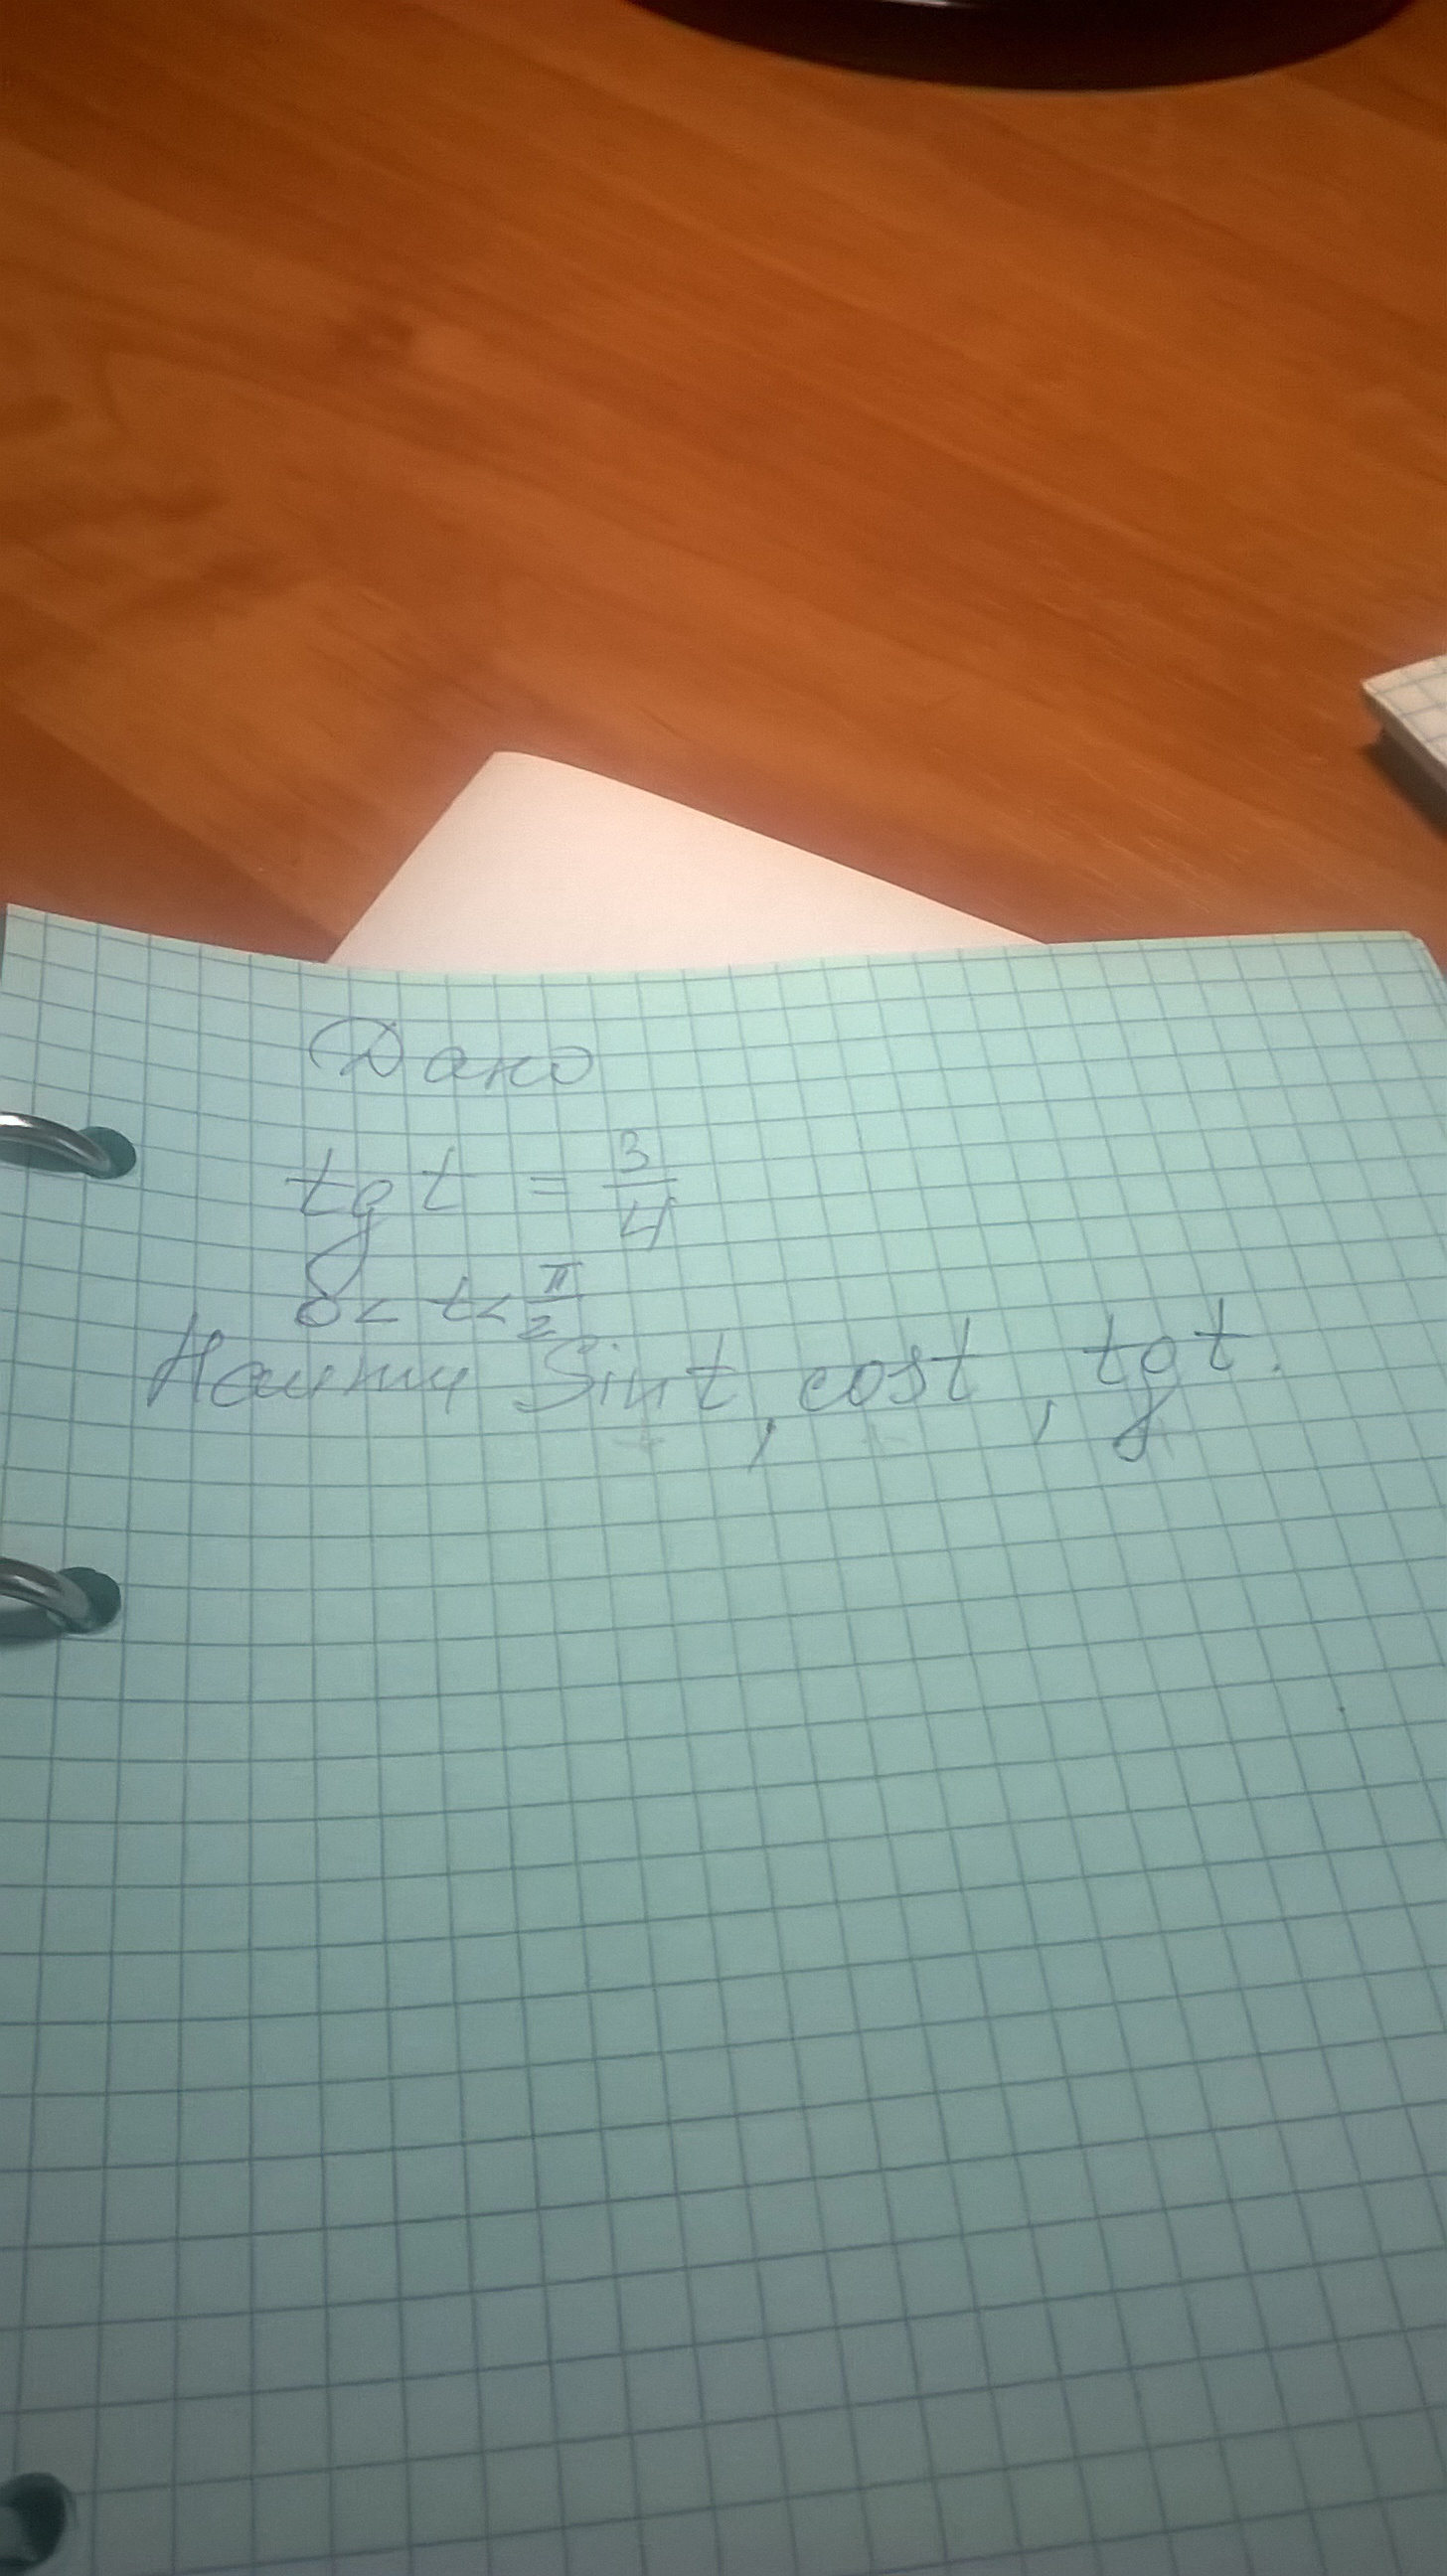 Дано
tg t = 3/4
0 < t < π/2
Найти Sin t, cos t, tg t.